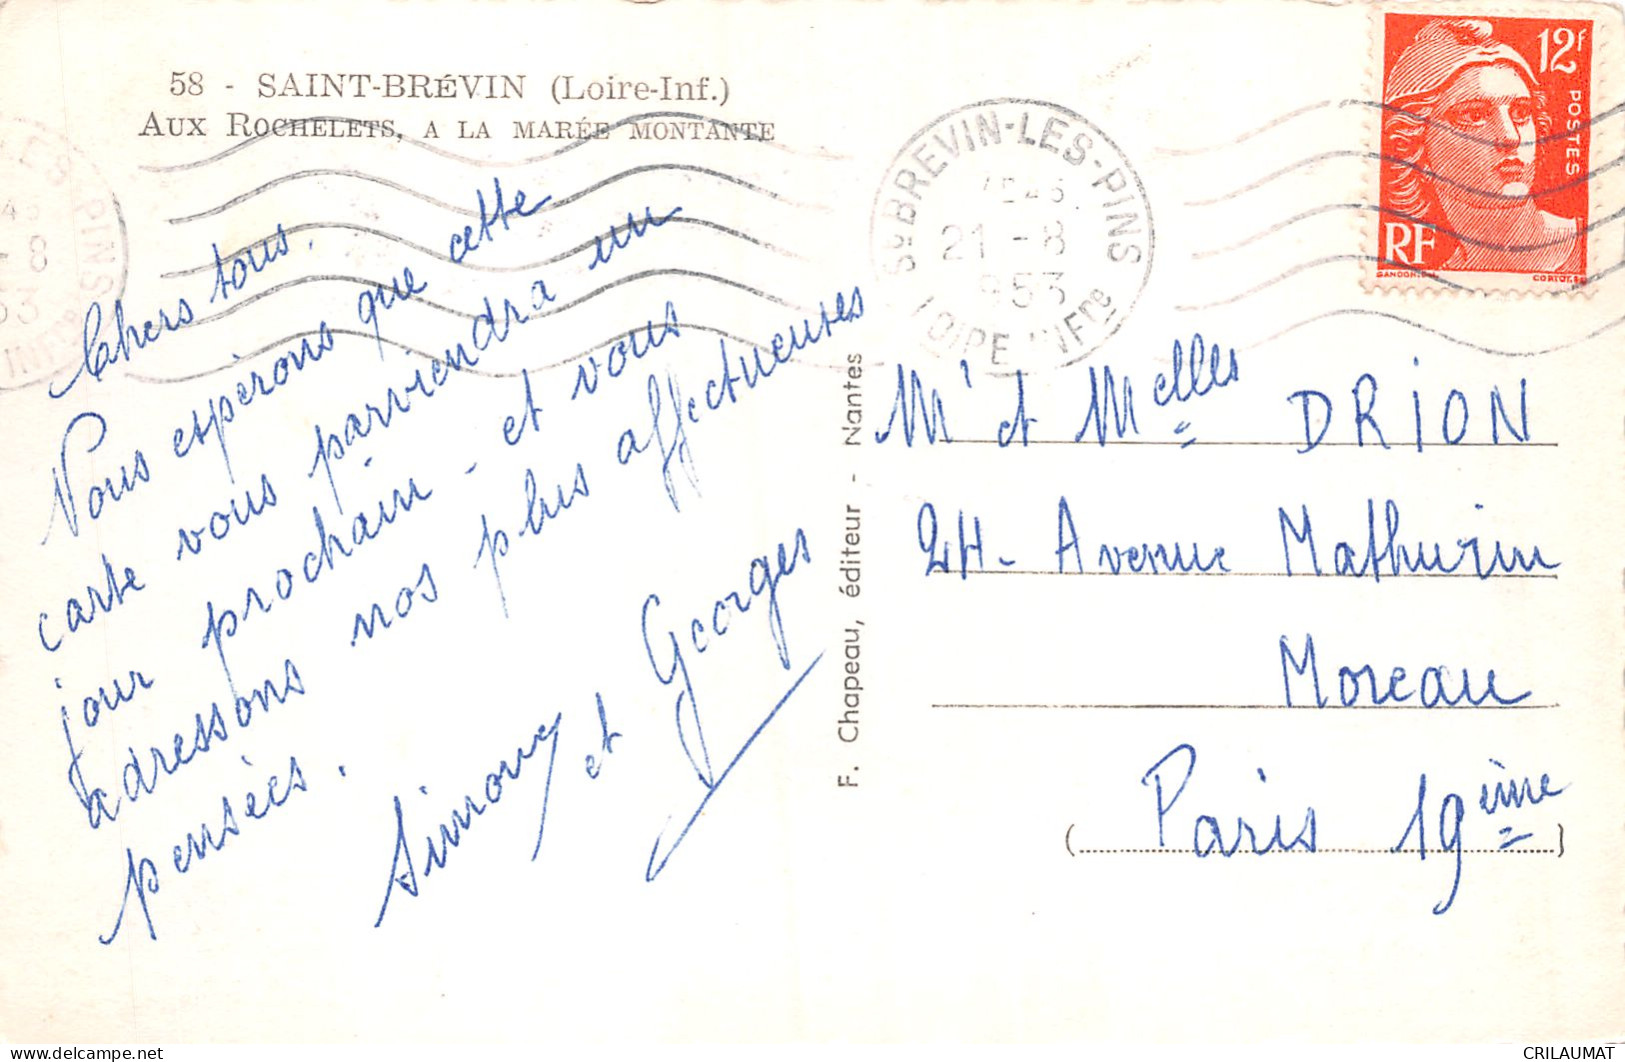 58 - SAINT-BRÉVIN (Loire-Inf.)
AUX ROCHELETS, A LA MARÉE MONTANTE
Chers tous.
Nous espérons que cette
carte vous parviendra un
jour prochain - et vous
adressons nos plus affectueuses
pensées.
Simone et Georges
F. Chapeau, éditeur - Nantes
St BREVIN-LES-PINS
21 -8
953
LOIRE INFre
12f
POSTES
RF
GANDON
CORTOT
Mr et Melles DRION
24- Avenue Mathurin
Moreau
(Paris 19ème)
8
PINS
INFre
CRILAUMAT